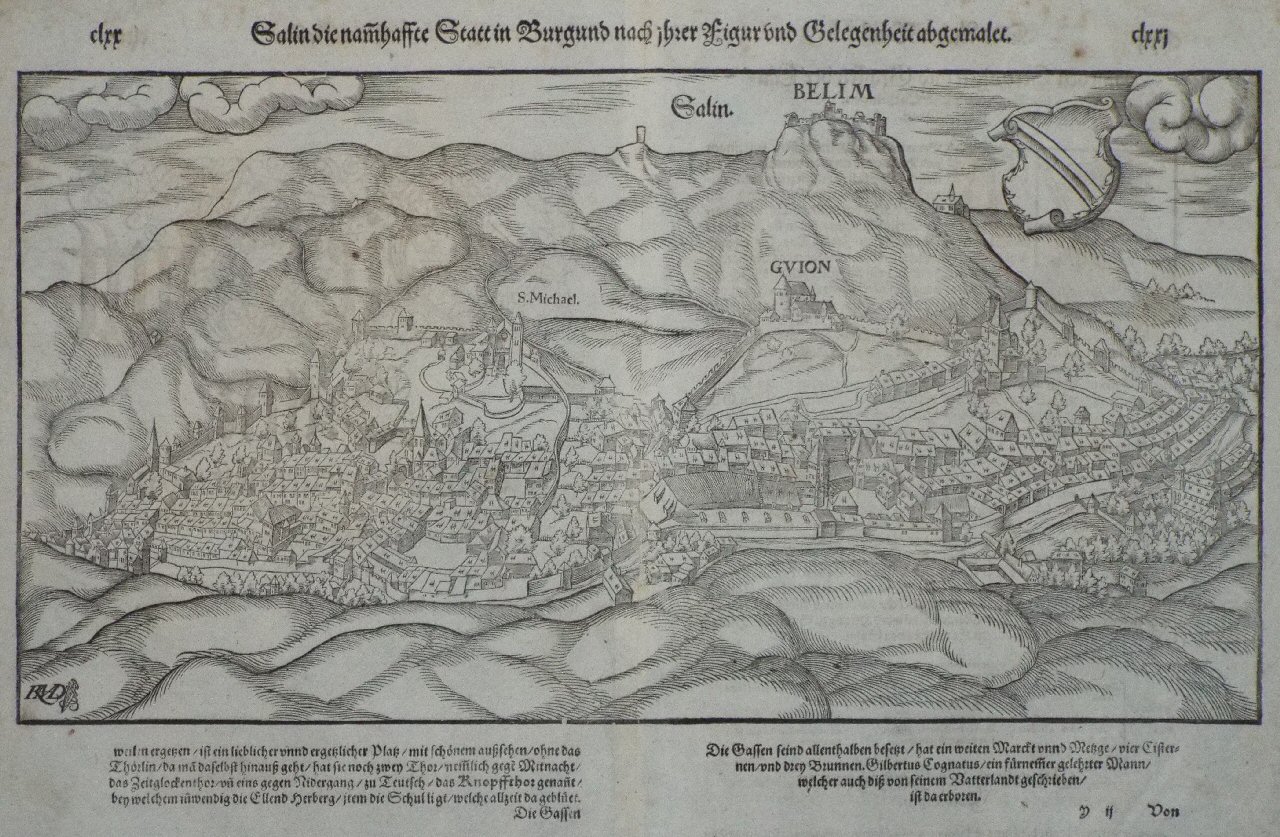 clxx
Salin die nam̃haffte Statt in Burgund nach jhrer Figur vnd Gelegenheit abgemalet.
clxxj
Salin.
BELIM
GVION
S. Michael.
weilen ergetzen / ist ein lieblicher vnnd ergetzlicher Platz / mit schönem außsehen / ohne das
Thörlin / da mā daselbst hinauß geht / hat sie noch zwey Thor / nem̃lich gegē Mitnacht /
das Zeitglockenthor / vñ eins gegen Nidergang / zu Teutsch / das Knopffthor genañt /
bey welchem inwendig die Ellend Herberg / jtem die Schul ligt / welche allzeit da geblüet.
Die Gassen
Die Gassen seind allenthalben besetzt / hat ein weiten Marckt vnnd Metzge / vier Cister-
nen / vnd drey Brunnen. Gilbertus Cognatus / ein fürnem̃er gelehrter Mann /
welcher auch diß von seinem Vatterland geschrieben /
ist da erboren.
Y ij Von